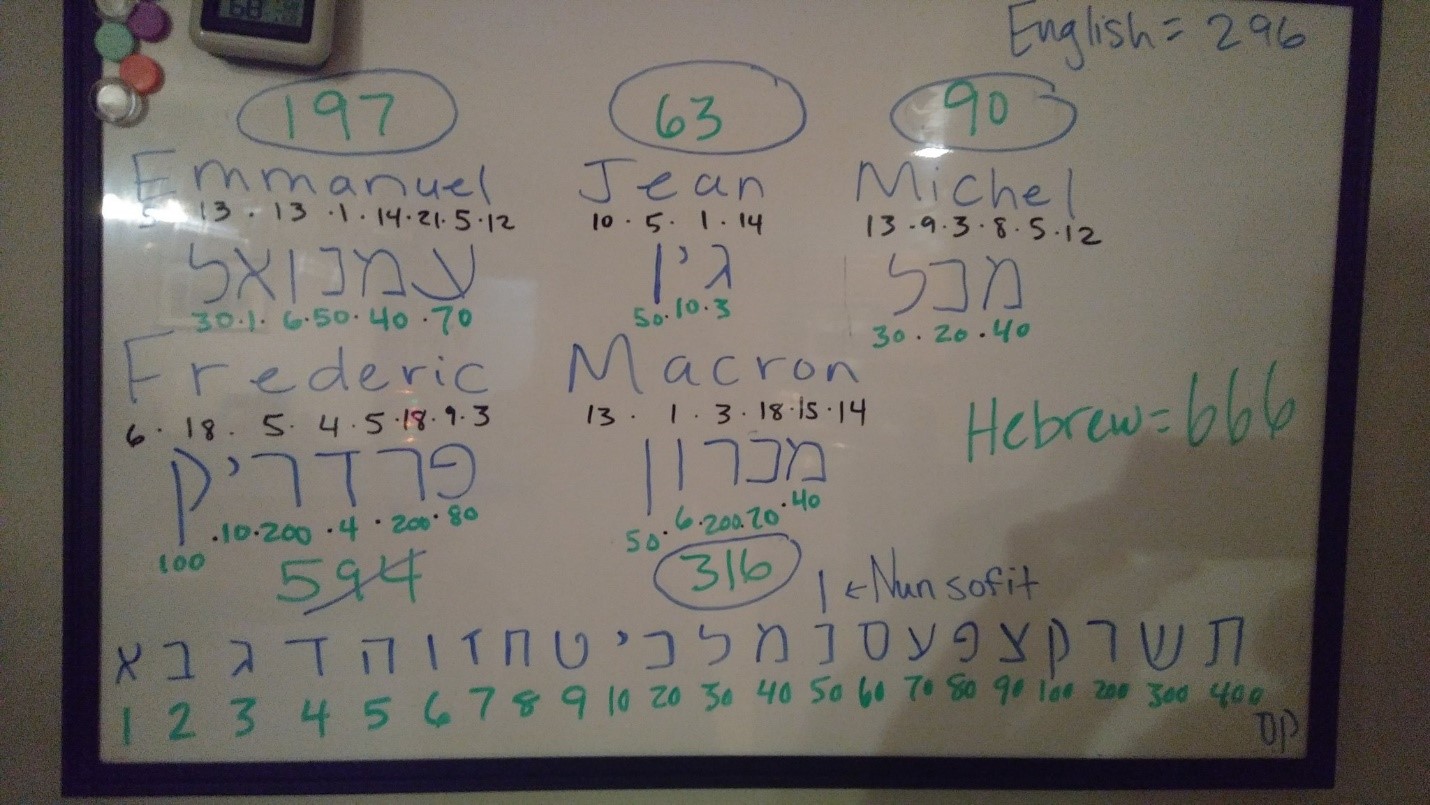 68
English = 296
197 63 90
Emmanuel Jean Michel
5 13 · 13 · 1 · 14 · 21 · 5 · 12 10 · 5 · 1 · 14 13 · 9 · 3 · 8 · 5 · 12
עמנואל גין מכל
30 · 1 · 6 · 50 · 40 · 70 50 · 10 · 3 30 · 20 · 40
Frederic Macron
6 · 18 · 5 · 4 · 5 · 18 · 9 · 3 13 · 1 · 3 · 18 · 15 · 14
Hebrew = 666
פרדריק מכרון
100 · 10 · 200 · 4 · 200 · 80 50 · 6 · 200 · 20 · 40
594 316
ן ← Nun sofit
א ב ג ד ה ו ז ח ט י כ ל מ נ ס ע פ צ ק ר ש ת
1 2 3 4 5 6 7 8 9 10 20 30 40 50 60 70 80 90 100 200 300 400